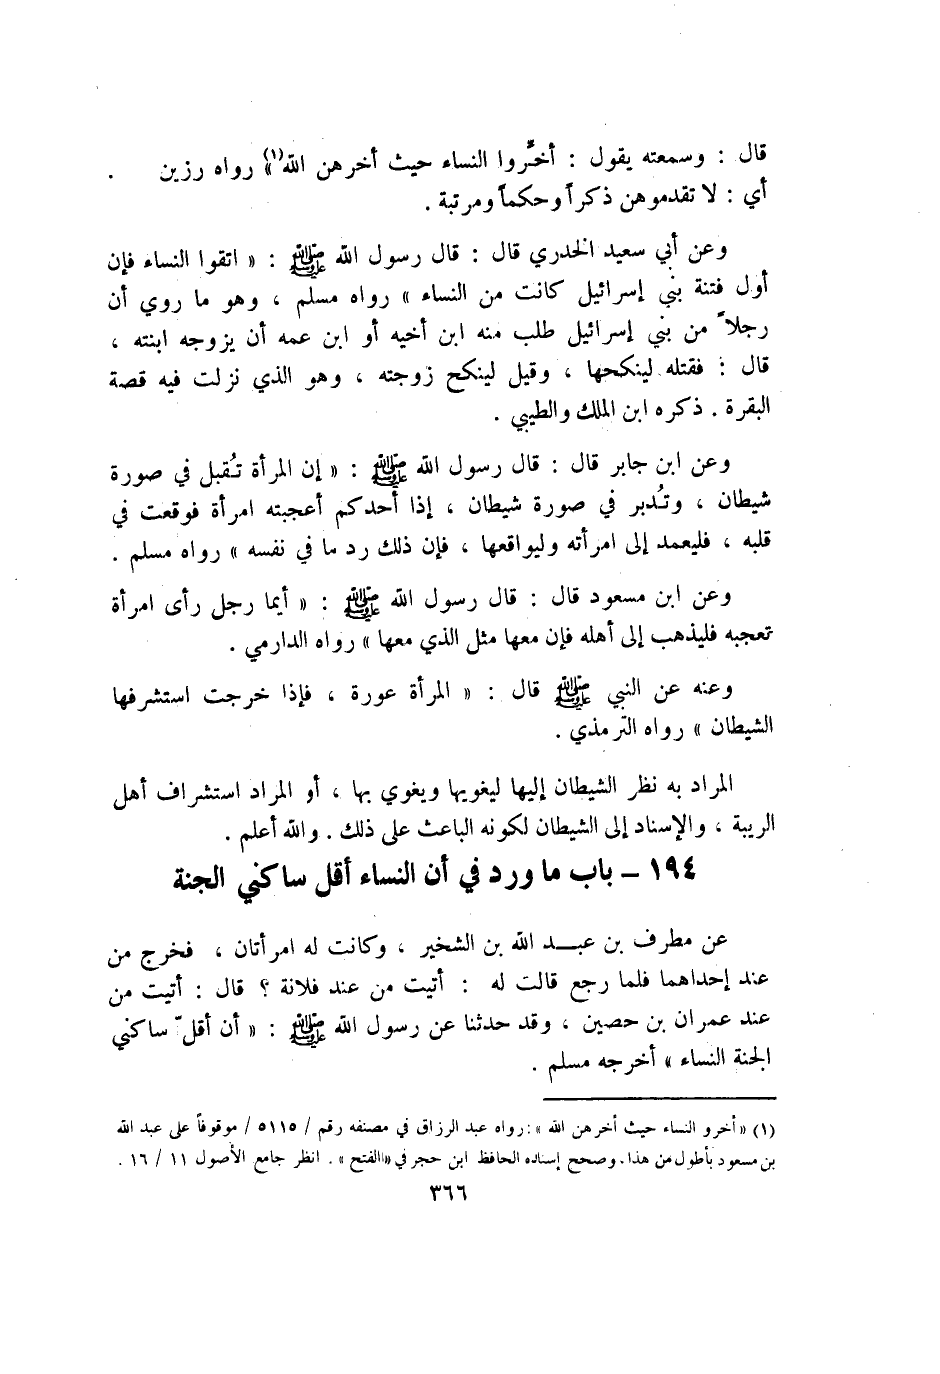 قال : وسمعته يقول : أخّروا النساء حيث أخرهن الله(١)» رواه رزين .
أي : لا تقدموهن ذكراً وحكماً ومرتبة .
وعن أبي سعيد الخدري قال : قال رسول الله ﷺ : « اتقوا النساء فإن
أول فتنة بني إسرائيل كانت من النساء » رواه مسلم ، وهو ما روي أن
رجلاً من بني إسرائيل طلب منه ابن أخيه أو ابن عمه أن يزوجه ابنته ،
قال : فقتله لينكحها ، وقيل لينكح زوجته ، وهو الذي نزلت فيه قصة
البقرة . ذكره ابن الملك والطيبي .
وعن ابن جابر قال : قال رسول الله ﷺ : « إن المرأة تُقبل في صورة
شيطان ، وتُدبر في صورة شيطان ، إذا أحدكم أعجبته امرأة فوقعت في
قلبه ، فليعمد إلى امرأته وليواقعها ، فإن ذلك رد ما في نفسه » رواه مسلم .
وعن ابن مسعود قال : قال رسول الله ﷺ : « أيما رجل رأى امرأة
تعجبه فليذهب إلى أهله فإن معها مثل الذي معها » رواه الدارمي .
وعنه عن النبي ﷺ قال : « المرأة عورة ، فإذا خرجت استشرفها
الشيطان » رواه الترمذي .
المراد به نظر الشيطان إليها ليغويها ويغوي بها ، أو المراد استشراف أهل
الريبة ، والإسناد إلى الشيطان لكونه الباعث على ذلك . والله أعلم .
١٩٤ – باب ما ورد في أن النساء أقل ساكني الجنة
عن مطرف بن عبد الله بن الشخير ، وكانت له امرأتان ، فخرج من
عند إحداهما فلما رجع قالت له : أتيت من عند فلانة ؟ قال : أتيت من
عند عمران بن حصين ، وقد حدثنا عن رسول الله ﷺ : « أن أقلّ ساكني
الجنة النساء » أخرجه مسلم .
(١) «أخرو النساء حيث أخرهن الله » : رواه عبد الرزاق في مصنفه رقم / ٥١١٥ / موقوفاً على عبد الله
بن مسعود بأطول من هذا . وصحح إسناده الحافظ ابن حجر في «الفتح » . انظر جامع الأصول ١١ / ١٦ .
٣٦٦